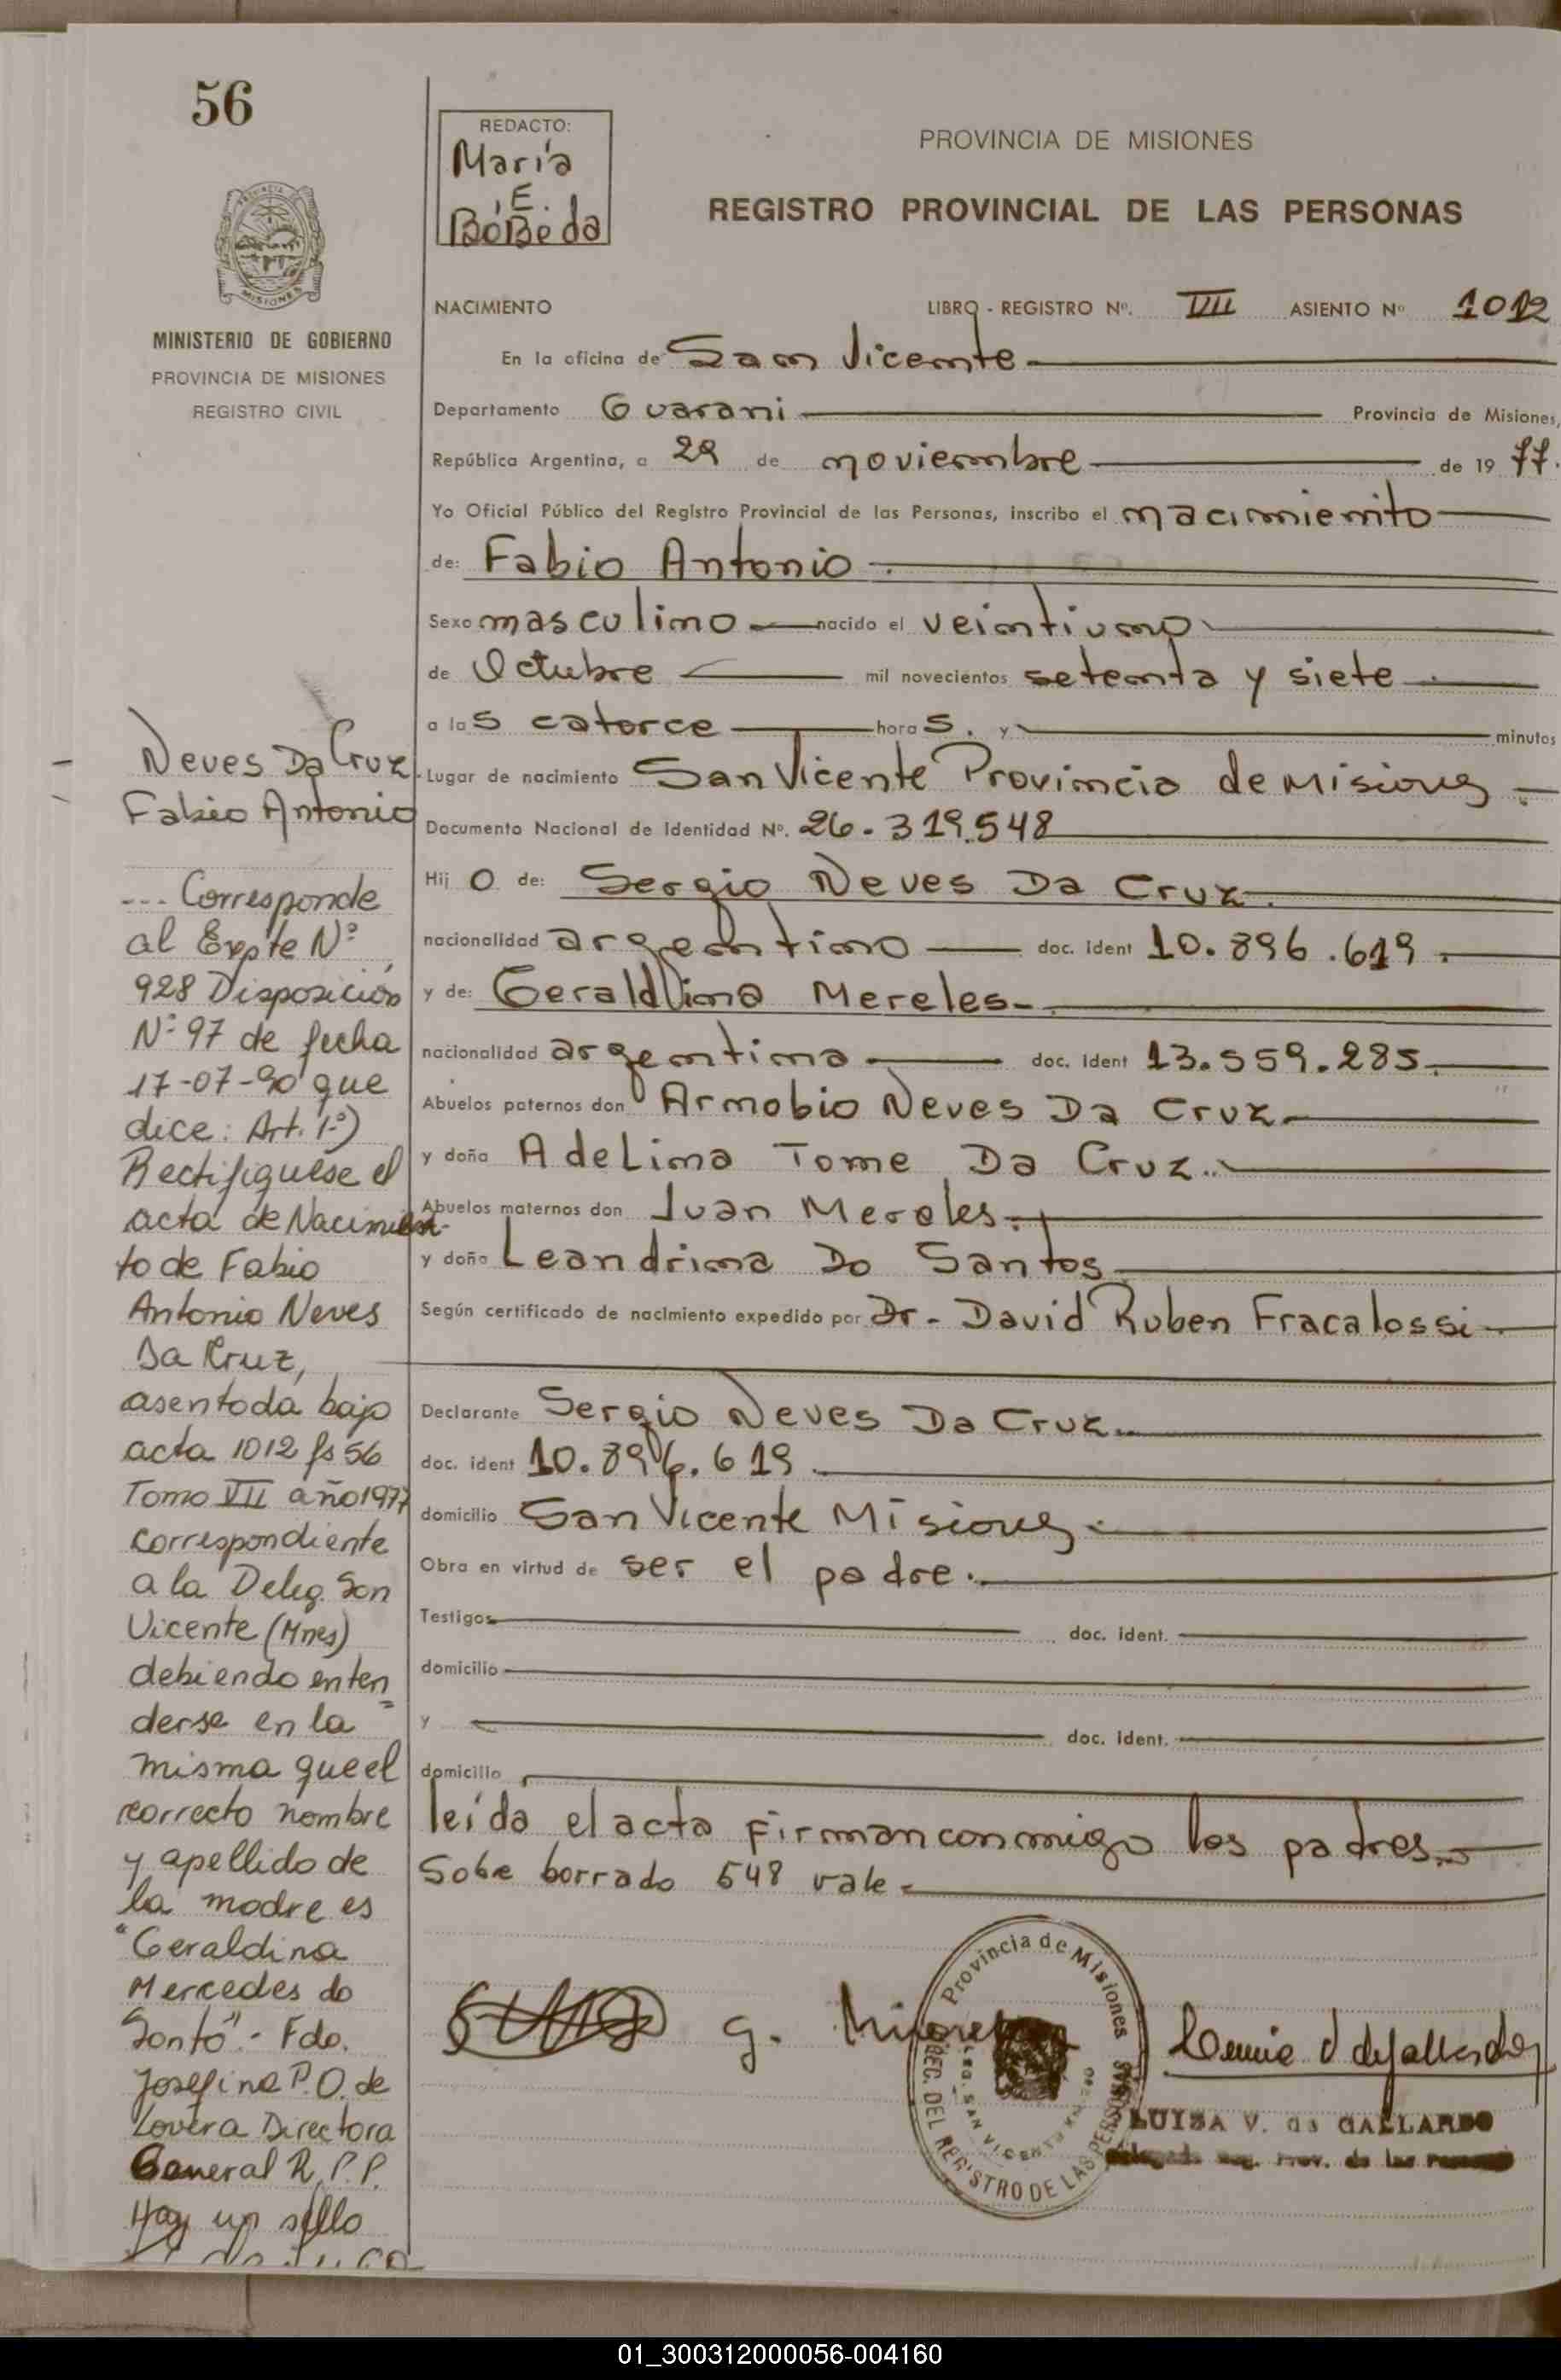 56
REDACTO:
María
E.
BóBeda
PROVINCIA DE MISIONES
REGISTRO PROVINCIAL DE LAS PERSONAS
MISIONES
MINISTERIO DE GOBIERNO
PROVINCIA DE MISIONES
REGISTRO CIVIL
NACIMIENTO LIBRO - REGISTRO Nº. VII ASIENTO Nº 1012
En la oficina de San Vicente
Departamento Guarani Provincia de Misiones,
República Argentina, a 29 de noviembre de 19 77.
Yo Oficial Público del Registro Provincial de las Personas, inscribo el nacimiento
de: Fabio Antonio
Sexo masculino nacido el veintiuno
de Octubre mil novecientos setenta y siete
a las catorce horas. y minutos
Lugar de nacimiento San Vicente Provincia de Misiones
Documento Nacional de Identidad Nº. 26.319.548
Hijo de: Sergio Neves Da Cruz
nacionalidad argentino doc. ident 10.896.619.
y de: Geraldina Mereles
nacionalidad argentina doc. ident 13.559.285.
Abuelos paternos don Armobio Neves Da Cruz
y doña Adelina Tome Da Cruz.
Abuelos maternos don Juan Mereles.
y doña Leandrina Do Santos
Según certificado de nacimiento expedido por Dr. David Ruben Fracalossi
Declarante Sergio Neves Da Cruz
doc. ident 10.896.619
domicilio San Vicente Misiones
Obra en virtud de ser el padre.
Testigos doc. ident.
domicilio
y doc. ident.
domicilio
leída el acta firman conmigo los padres
Sobe borrado 548 vale
Neves Da Cruz
Fabio Antonio
--- Corresponde
al Expte Nº
928 Disposición
Nº 97 de fecha
17-07-90 que
dice: Art. 1º)
Rectifiquese el
acta de Nacimien-
to de Fabio
Antonio Neves
Da Cruz,
asentada bajo
acta 1012 fs 56
Tomo VII año 1977
correspondiente
a la Deleg. San
Vicente (Mnes)
debiendo enten
derse en la
misma que el
correcto nombre
y apellido de
la madre es
"Geraldina
Mercedes do
Santo".- Fdo.
Josefina P.O. de
Lovera Directora
General R.P.P.
Hay un sello
G.
Provincia de Misiones
REC. DEL REGISTRO DE LAS PERSONAS
SAN VICENTE
LUISA V. de GALLARDO
Delegada Reg. Prov. de las Personas
01_300312000056-004160